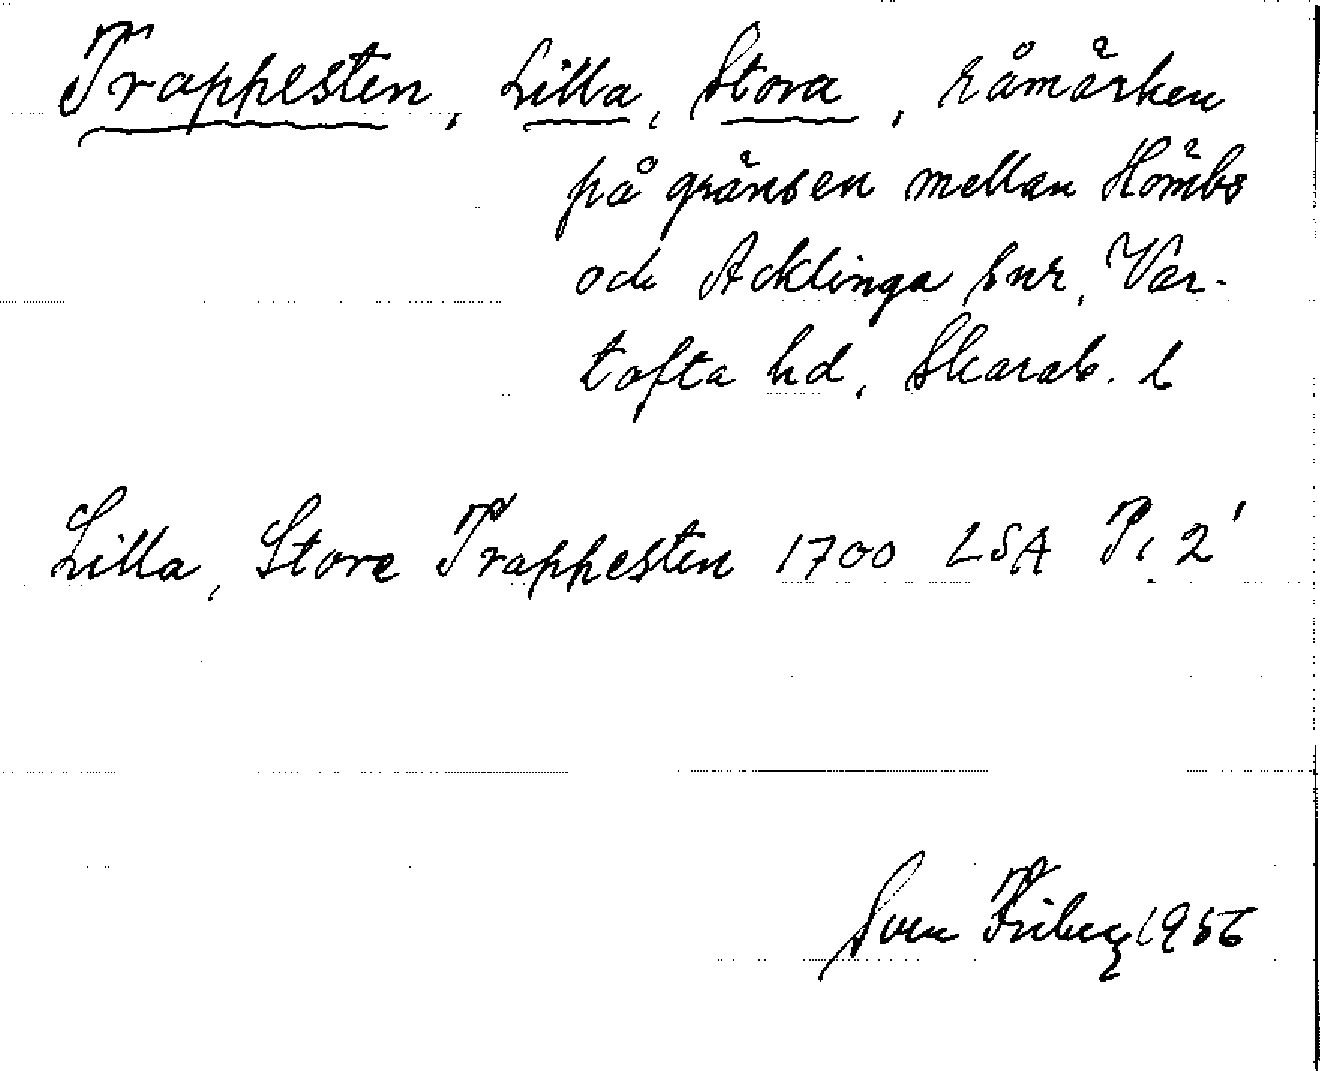 Trappesten, Lilla, Stora, råmärken
på gränsen mellan Hömbs
och Acklinga snr, Var-
tofta hd, Skarab. l
Lilla, Store Trappesten 1700 LSA P. 2'
Sven Friberg 1956